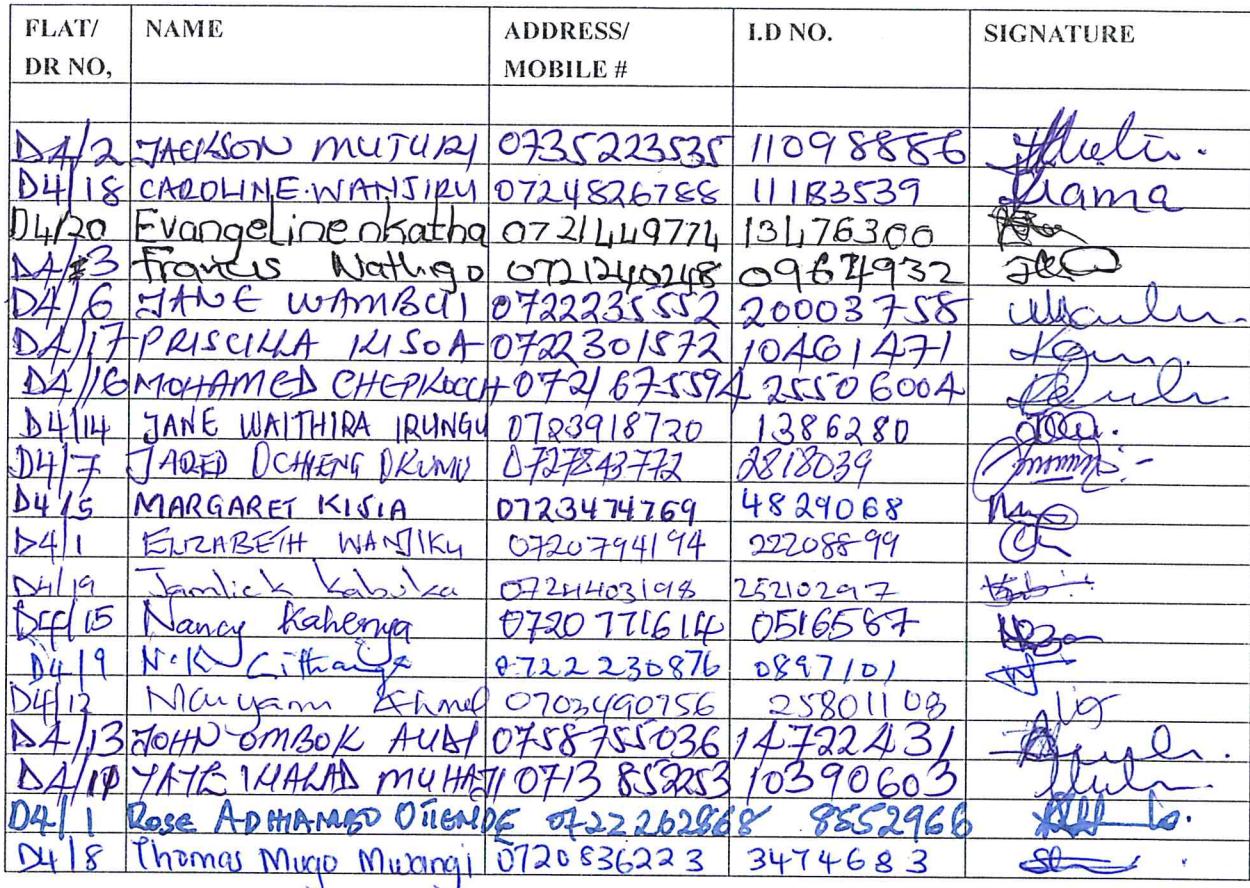 FLAT/ NAME ADDRESS/ I.D NO. SIGNATURE
DR NO, MOBILE #
D4/2 JACKSON MUTURI 0735223535 11098886
D4/18 CAROLINE WANJIRU 0724826788 11183539
D4/20 Evangeline nkatha 0721449774 13476300
D4/3 Francis 0721240248
D4/6 JANE WAMBUI 0722235552 20003758
D4/17 PRISCILLA KISOA 0722301572 10461471
D4/16 MOHAMED 0721675594 25506004
D4/14 JANE WAITHIRA IRUNGU 0723918720 1386280
D4/7 JARED OCHIENG 0727843772 2818039
D4/5 MARGARET KISIA 0723474769 4829068
D4/1 ELIZABETH WANJIKU 0720794194 22208899
D4/19 Jamlick 0724403198 25210297
15 Nancy Kahenya 0720771614 0516587
D4/9 N.K 0722230876 0897101
D4/12 0703490756 25801108
D4/13 JOHN OMBOK 0758755036 14722431
0713852253 10390603
D4/1 Rose ADHIAMBO 8552966
D4/8 Thomas Mugo Mwangi 0720836223 3474683